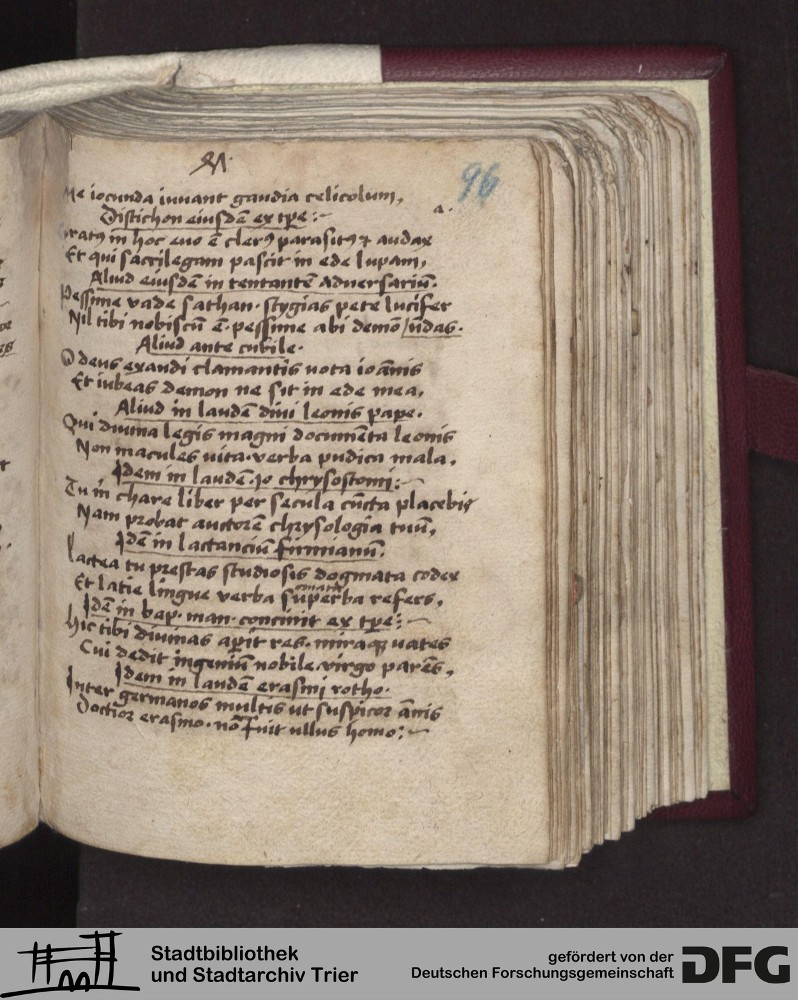 M
96
Me iocunda iuuant gaudia celicolum,
Distichon eiusdē ex tp̄e:
a.
Gratꝯ in hoc euo ē clerꝯ parasitꝯ ⁊ audax
Et qui sacrilegam pascit in ede lupam,
Aliud eiusdē in tentantē aduersariū.
Pessime vade sathan. stygias pete lucifer
Nil tibi nobiscū ē. pessime abi demō /ūdas.
Aliud ante cubile.
O deus exaudi clamantis uota ioānis
Et iubeas demon ne sit in ede mea,
Aliud in laudē diui leonis pape.
Qui diuina legis magni documēta leonis
Non macules uita. verba pudica mala,
Idem in laudē. Io chrysostomi:
Tu in chare liber per secula cūcta placebis
Nam probat auctorē chrysologia tuū,
Idē in lactanciū firmianū.
Lactea tu prestas studiosis dogmata codex
Et latie lingue verba superba refers,
Idē in bap. man. concinit ex tp̄e:
Hic tibi diuinas apit res. miraqꝫ uates
Cui dedit ingeniū nobile virgo parēs,
Idem in laudē erasmi rotho.
Inter germanos multis ut suspicor ānis
Doctior erasmo. nō fuit ullus homo:
Stadtbibliothek
und Stadtarchiv Trier
gefördert von der
Deutschen Forschungsgemeinschaft
DFG